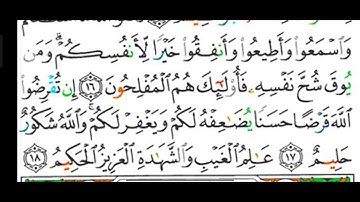 وَٱسْمَعُوا۟ وَأَطِيعُوا۟ وَأَنفِقُوا۟ خَيْرًا لِّأَنفُسِكُمْ ۗ وَمَن
يُوقَ شُحَّ نَفْسِهِۦ فَأُو۟لَٰٓئِكَ هُمُ ٱلْمُفْلِحُونَ ١٦ إِن تُقْرِضُوا۟
ٱللَّهَ قَرْضًا حَسَنًا يُضَٰعِفْهُ لَكُمْ وَيَغْفِرْ لَكُمْ وَٱللَّهُ شَكُورٌ
حَلِيمٌ ١٧ عَٰلِمُ ٱلْغَيْبِ وَٱلشَّهَٰدَةِ ٱلْعَزِيزُ ٱلْحَكِيمُ ١٨